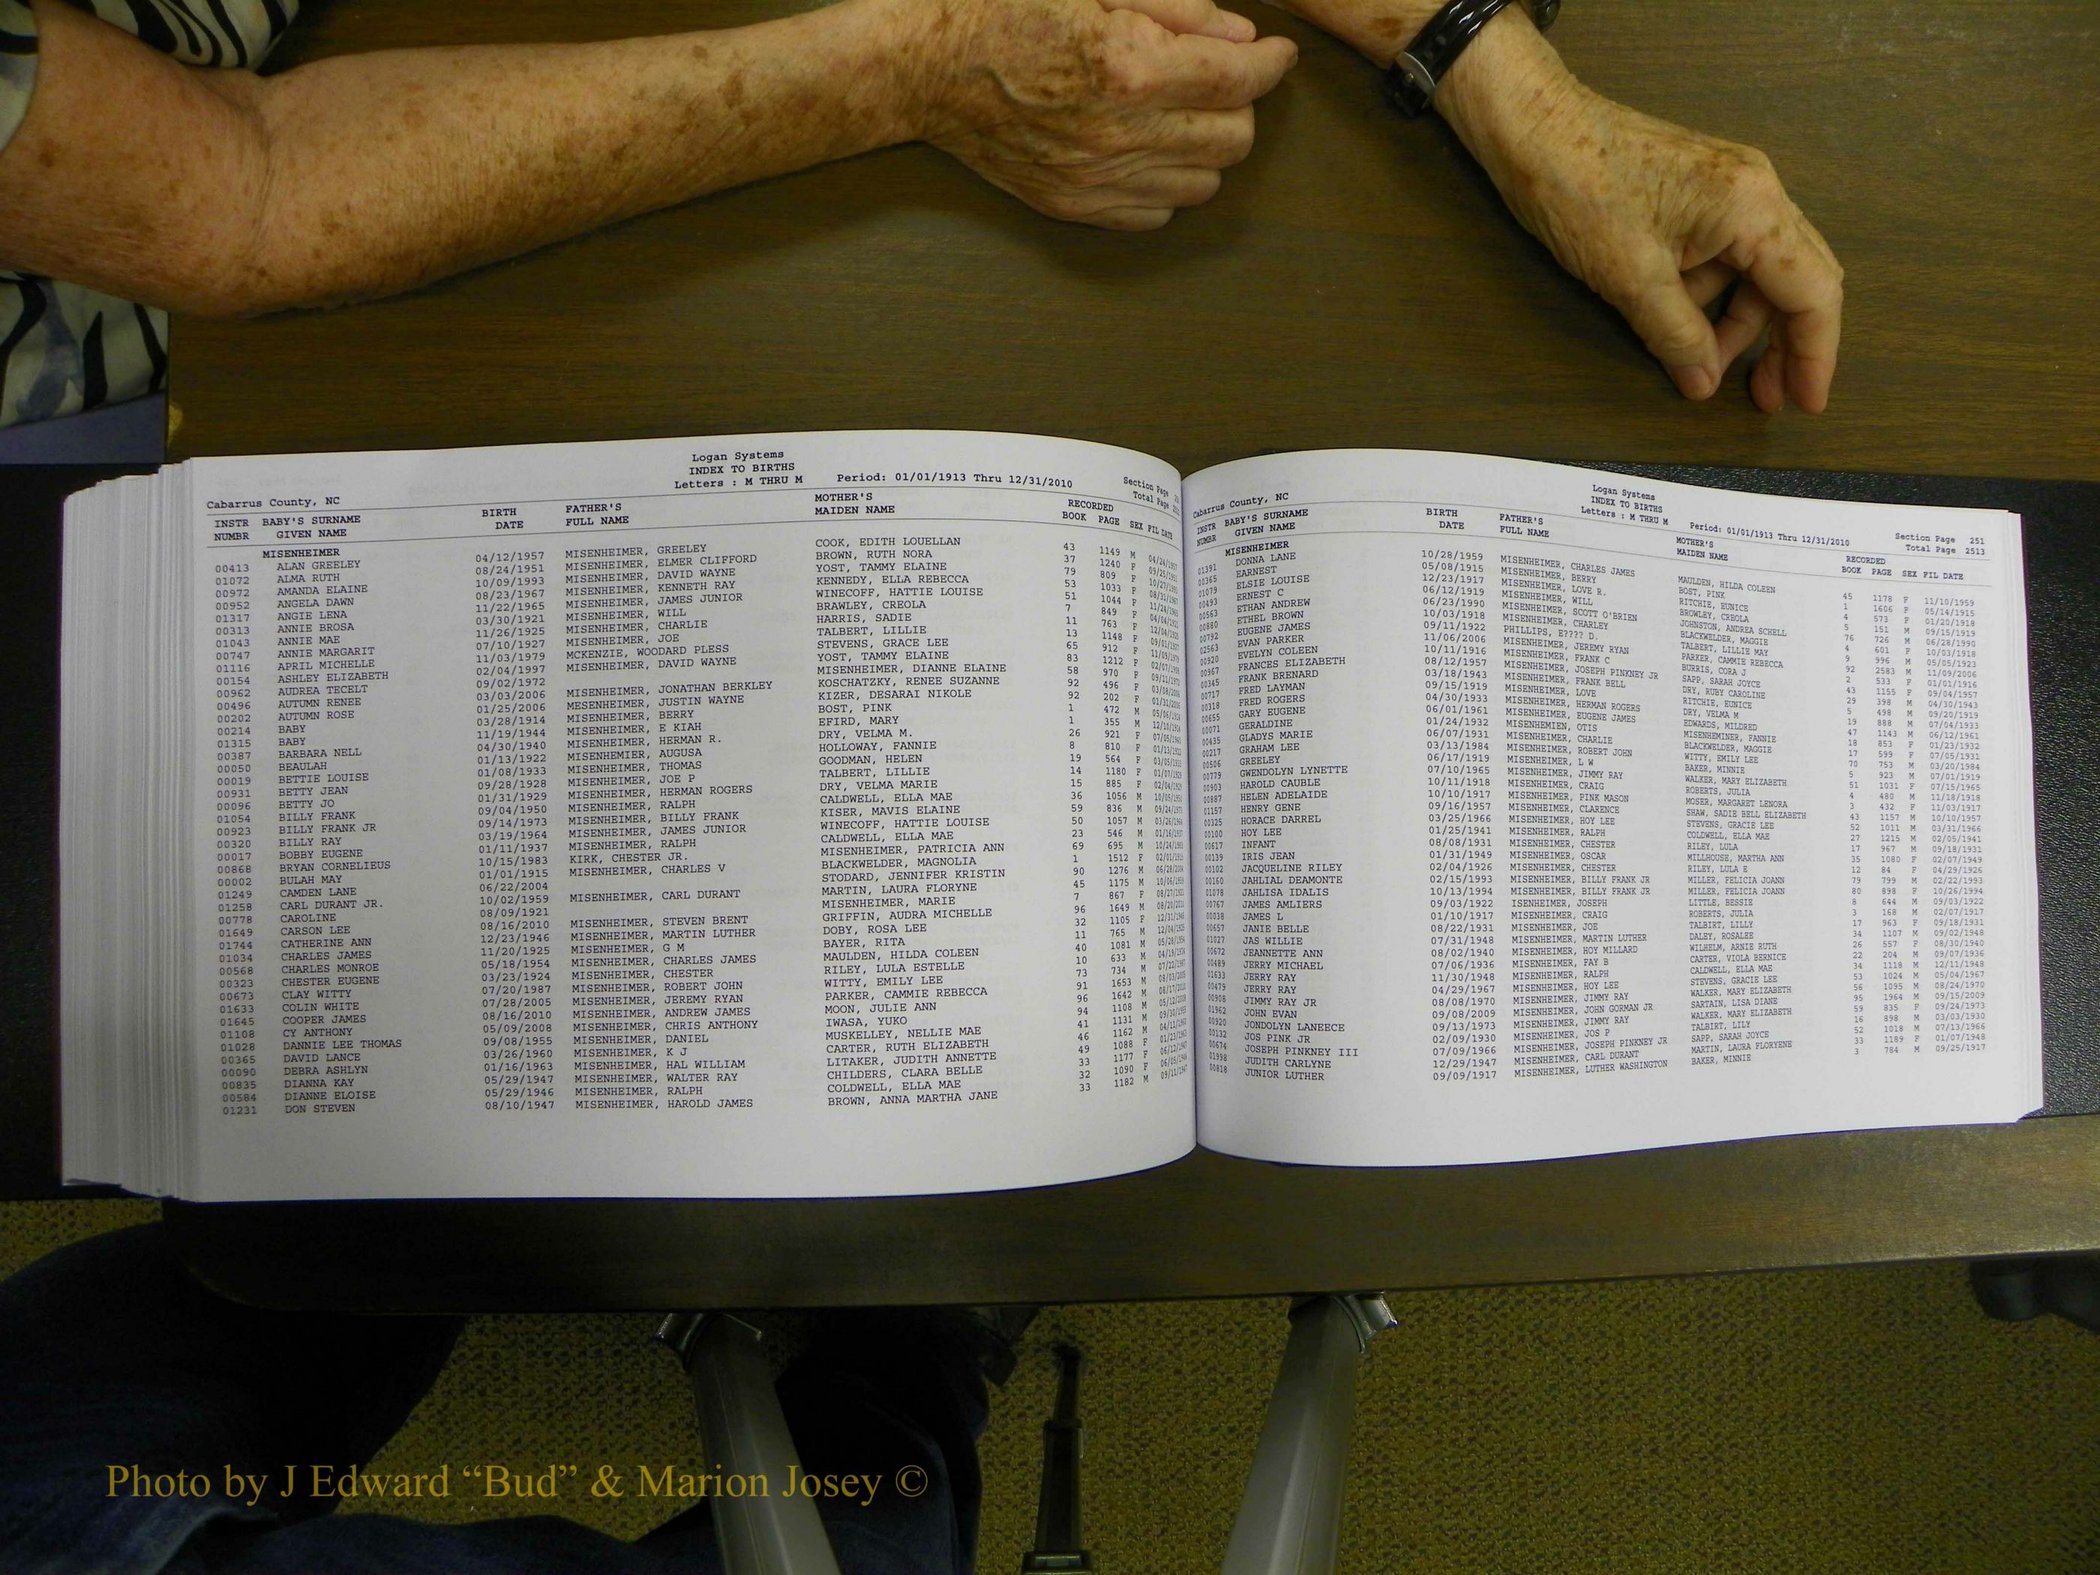 Logan Systems
INDEX TO BIRTHS
Cabarrus County, NC Letters : M THRU M Period: 01/01/1913 Thru 12/31/2010 Section Page
Total Page
INSTR BABY'S SURNAME BIRTH FATHER'S MOTHER'S RECORDED
NUMBR GIVEN NAME DATE FULL NAME MAIDEN NAME BOOK PAGE SEX FIL DATE
MISENHEIMER
00413 ALAN GREELEY 04/12/1957 MISENHEIMER, GREELEY COOK, EDITH LOUELLAN 43 1149 M
01072 ALMA RUTH 08/24/1951 MISENHEIMER, ELMER CLIFFORD BROWN, RUTH NORA 37 1240 F
00972 AMANDA ELAINE 10/09/1993 MISENHEIMER, DAVID WAYNE YOST, TAMMY ELAINE 79 809 F
00952 ANGELA DAWN 08/23/1967 MISENHEIMER, KENNETH RAY KENNEDY, ELLA REBECCA 53 1033 F
01317 ANGIE LENA 11/22/1965 MISENHEIMER, JAMES JUNIOR WINECOFF, HATTIE LOUISE 51 1044 F
00313 ANNIE BROSA 03/30/1921 MISENHEIMER, WILL BRAWLEY, CREOLA 7 849 F
01043 ANNIE MAE 11/26/1925 MISENHEIMER, CHARLIE HARRIS, SADIE 11 763 F
00747 ANNIE MARGARIT 07/10/1927 MISENHEIMER, JOE TALBERT, LILLIE 13 1148 F
01116 APRIL MICHELLE 11/03/1979 MCKENZIE, WOODARD PLESS STEVENS, GRACE LEE 65 912 F
00154 ASHLEY ELIZABETH 02/04/1997 MISENHEIMER, DAVID WAYNE YOST, TAMMY ELAINE 83 1212 F
00962 AUDREA TECELT 09/02/1972 MISENHEIMER, DIANNE ELAINE 58 970 F
00496 AUTUMN RENEE 03/03/2006 MISENHEIMER, JONATHAN BERKLEY KOSCHATZKY, RENEE SUZANNE 92 496 F
00202 AUTUMN ROSE 01/25/2006 MESENHEIMER, JUSTIN WAYNE KIZER, DESARAI NIKOLE 92 202 F
00214 BABY 03/28/1914 MISENHEIMER, BERRY BOST, PINK 1 472 M
01315 BABY 11/19/1944 MISENHEIMER, E KIAH EFIRD, MARY 1 355 M
00387 BARBARA NELL 04/30/1940 MISENHEIMER, HERMAN R. DRY, VELMA M. 26 921 F
00050 BEAULAH 01/13/1922 MISENHEMIER, AUGUSA HOLLOWAY, FANNIE 8 810 F
00019 BETTIE LOUISE 01/08/1933 MISENHEIMER, THOMAS GOODMAN, HELEN 19 564 F
00931 BETTY JEAN 09/28/1928 MISENHEIMER, JOE P TALBERT, LILLIE 14 1180 F
00096 BETTY JO 01/31/1929 MISENHEIMER, HERMAN ROGERS DRY, VELMA MARIE 15 885 F
01054 BILLY FRANK 09/04/1950 MISENHEIMER, RALPH CALDWELL, ELLA MAE 36 1056 M
00923 BILLY FRANK JR 09/14/1973 MISENHEIMER, BILLY FRANK KISER, MAVIS ELAINE 59 836 M
00320 BILLY RAY 03/19/1964 MISENHEIMER, JAMES JUNIOR WINECOFF, HATTIE LOUISE 50 1057 M
00017 BOBBY EUGENE 01/11/1937 MISENHEIMER, RALPH CALDWELL, ELLA MAE 23 546 M
00868 BRYAN CORNELIEUS 10/15/1983 KIRK, CHESTER JR. MISENHEIMER, PATRICIA ANN 69 695 M
00002 BULAH MAY 01/01/1915 MISENHEIMER, CHARLES V BLACKWELDER, MAGNOLIA 1 1512 F
01249 CAMDEN LANE 06/22/2004 STODARD, JENNIFER KRISTIN 90 1276 M
01258 CARL DURANT JR. 10/02/1959 MISENHEIMER, CARL DURANT MARTIN, LAURA FLORYNE 45 1175 M
00778 CAROLINE 08/09/1921 MISENHEIMER, MARIE 7 867 F
01649 CARSON LEE 08/16/2010 MISENHEIMER, STEVEN BRENT GRIFFIN, AUDRA MICHELLE 96 1649 M
01744 CATHERINE ANN 12/23/1946 MISENHEIMER, MARTIN LUTHER DOBY, ROSA LEE 32 1105 F
01034 CHARLES JAMES 11/20/1925 MISENHEIMER, G M BAYER, RITA 11 765 M
00568 CHARLES MONROE 05/18/1954 MISENHEIMER, CHARLES JAMES MAULDEN, HILDA COLEEN 40 1081 M
00323 CHESTER EUGENE 03/23/1924 MISENHEIMER, CHESTER RILEY, LULA ESTELLE 10 633 M
00673 CLAY WITTY 07/20/1987 MISENHEIMER, ROBERT JOHN WITTY, EMILY LEE 73 734 M
01633 COLIN WHITE 07/28/2005 MISENHEIMER, JEREMY RYAN PARKER, CAMMIE REBECCA 91 1653 M
01645 COOPER JAMES 08/16/2010 MISENHEIMER, ANDREW JAMES MOON, JULIE ANN 96 1642 M
01108 CY ANTHONY 05/09/2008 MISENHEIMER, CHRIS ANTHONY IWASA, YUKO 94 1108 M
01028 DANNIE LEE THOMAS 09/08/1955 MISENHEIMER, DANIEL MUSKELLEY, NELLIE MAE 41 1131 M
00365 DAVID LANCE 03/26/1960 MISENHEIMER, K J CARTER, RUTH ELIZABETH 46 1162 M
00090 DEBRA ASHLYN 01/16/1963 MISENHEIMER, HAL WILLIAM LITAKER, JUDITH ANNETTE 49 1088 F
00835 DIANNA KAY 05/29/1947 MISENHEIMER, WALTER RAY CHILDERS, CLARA BELLE 33 1177 F
00584 DIANNE ELOISE 05/29/1946 MISENHEIMER, RALPH COLDWELL, ELLA MAE 32 1090 F
01231 DON STEVEN 08/10/1947 MISENHEIMER, HAROLD JAMES BROWN, ANNA MARTHA JANE 33 1182 M
Logan Systems
INDEX TO BIRTHS
Cabarrus County, NC Letters : M THRU M Period: 01/01/1913 Thru 12/31/2010 Section Page 251
Total Page 2513
INSTR BABY'S SURNAME BIRTH FATHER'S MOTHER'S RECORDED
NUMBR GIVEN NAME DATE FULL NAME MAIDEN NAME BOOK PAGE SEX FIL DATE
MISENHEIMER
01391 DONNA LANE 10/28/1959 MISENHEIMER, CHARLES JAMES MAULDEN, HILDA COLEEN 45 1178 F 11/10/1959
00365 EARNEST 05/08/1915 MISENHEIMER, BERRY BOST, PINK 1 1606 F 05/14/1915
01079 ELSIE LOUISE 12/23/1917 MISENHEIMER, LOVE R. RITCHIE, EUNICE 4 573 F 01/20/1918
00493 ERNEST C 06/12/1919 MISENHEIMER, WILL BROWLEY, CREOLA 5 151 M 09/15/1919
00563 ETHAN ANDREW 06/23/1990 MISENHEIMER, SCOTT O'BRIEN JOHNSTON, ANDREA SCHELL 76 726 M 06/28/1990
00880 ETHEL BROWN 10/03/1918 MISENHEIMER, CHARLEY BLACKWELDER, MAGGIE 4 601 F 10/03/1918
00792 EUGENE JAMES 09/11/1922 PHILLIPS, E???? D. TALBERT, LILLIE MAY 9 996 M 05/05/1923
02563 EVAN PARKER 11/06/2006 MISENHEIMER, JEREMY RYAN PARKER, CAMMIE REBECCA 92 2583 M 11/09/2006
00920 EVELYN COLEEN 10/11/1916 MISENHEIMER, FRANK C BURRIS, CORA J 2 533 F 01/01/1916
00967 FRANCES ELIZABETH 08/12/1957 MISENHEIMER, JOSEPH PINKNEY JR SAPP, SARAH JOYCE 43 1155 F 09/04/1957
00345 FRANK BRENARD 03/18/1943 MISENHEIMER, FRANK BELL DRY, RUBY CAROLINE 29 398 M 04/30/1943
00717 FRED LAYMAN 09/15/1919 MISENHEIMER, LOVE RITCHIE, EUNICE 5 498 M 09/20/1919
00318 FRED ROGERS 04/30/1933 MISENHEIMER, HERMAN ROGERS DRY, VELMA M 19 888 M 07/04/1933
00655 GARY EUGENE 06/01/1961 MISENHEIMER, EUGENE JAMES EDWARDS, MILDRED 47 1143 M 06/12/1961
00071 GERALDINE 01/24/1932 OTIS MISENHEMINER, FANNIE 18 853 F 01/23/1932
00435 GLADYS MARIE 06/07/1931 MISENHEIMER, CHARLIE BLACKWELDER, MAGGIE 17 599 F 07/05/1931
00217 GRAHAM LEE 03/13/1984 MISENHEIMER, ROBERT JOHN WITTY, EMILY LEE 70 753 M 03/20/1984
00506 GREELEY 06/17/1919 MISENHEIMER, L W BAKER, MINNIE 5 923 M 07/01/1919
00779 GWENDOLYN LYNETTE 07/10/1965 MISENHEIMER, JIMMY RAY WALKER, MARY ELIZABETH 51 1031 F 07/15/1965
00903 HAROLD CAUBLE 10/11/1918 MISENHEIMER, CRAIG ROBERTS, JULIA 4 480 M 11/18/1918
00887 HELEN ADELAIDE 10/10/1917 MISENHEIMER, PINK MASON MOSER, MARGARET LENORA 3 432 F 11/03/1917
01157 HENRY GENE 09/16/1957 MISENHEIMER, CLARENCE SHAW, SADIE BELL ELIZABETH 43 1157 M 10/10/1957
00325 HORACE DARREL 03/25/1966 MISENHEIMER, HOY LEE STEVENS, GRACIE LEE 52 1011 M 03/31/1966
00100 HOY LEE 01/25/1941 MISENHEIMER, RALPH COLDWELL, ELLA MAE 27 1215 M 02/05/1941
00617 INFANT 08/08/1931 MISENHEIMER, CHESTER RILEY, LULA 17 967 M 09/18/1931
00139 IRIS JEAN 01/31/1949 MISENHEIMER, OSCAR MILLHOUSE, MARTHA ANN 35 1080 F 02/07/1949
00102 JACQUELINE RILEY 02/04/1926 MISENHEIMER, CHESTER RILEY, LULA E 12 84 F 04/29/1926
00160 JAHLIAL DEAMONTE 02/15/1993 MISENHEIMER, BILLY FRANK JR MILLER, FELICIA JOANN 79 799 M 02/22/1993
01078 JAHLISA IDALIS 10/13/1994 MISENHEIMER, BILLY FRANK JR MILLER, FELICIA JOANN 80 898 F 10/26/1994
00767 JAMES AMLIERS 09/03/1922 ISENHEIMER, JOSEPH LITTLE, BESSIE 8 644 M 09/03/1922
00038 JAMES L 01/10/1917 MISENHEIMER, CRAIG ROBERTS, JULIA 3 168 M 02/07/1917
00657 JANIE BELLE 08/22/1931 MISENHEIMER, JOE TALBIRT, LILLY 17 963 F 09/18/1931
01027 JAS WILLIE 07/31/1948 MISENHEIMER, MARTIN LUTHER DALEY, ROSALEE 34 1107 M 09/02/1948
00672 JEANNETTE ANN 08/02/1940 MISENHEIMER, HOY MILLARD WILHELM, ARNIE RUTH 26 557 F 08/30/1940
00489 JERRY MICHAEL 07/06/1936 MISENHEIMER, FAY B CARTER, VIOLA BERNICE 22 204 M 09/07/1936
01633 JERRY RAY 11/30/1948 MISENHEIMER, RALPH CALDWELL, ELLA MAE 34 1118 M 12/11/1948
00479 JERRY RAY 04/29/1967 MISENHEIMER, HOY LEE STEVENS, GRACIE LEE 53 1024 M 05/04/1967
00908 JIMMY RAY JR 08/08/1970 MISENHEIMER, JIMMY RAY WALKER, MARY ELIZABETH 56 1095 M 08/24/1970
01962 JOHN EVAN 09/08/2009 MISENHEIMER, JOHN GORMAN JR SARTAIN, LISA DIANE 95 1964 M 09/15/2009
00920 JONDOLYN LANEECE 09/13/1973 MISENHEIMER, JIMMY RAY WALKER, MARY ELIZABETH 59 835 F 09/24/1973
00132 JOS PINK JR 02/09/1930 MISENHEIMER, JOS P TALBIRT, LILY 16 898 M 03/03/1930
00674 JOSEPH PINKNEY III 07/09/1966 MISENHEIMER, JOSEPH PINKNEY JR SAPP, SARAH JOYCE 52 1018 M 07/13/1966
01998 JUDITH CARLYNE 12/29/1947 MISENHEIMER, CARL DURANT MARTIN, LAURA FLORYENE 33 1189 F 01/07/1948
00818 JUNIOR LUTHER 09/09/1917 MISENHEIMER, LUTHER WASHINGTON BAKER, MINNIE 3 784 M 09/25/1917
Photo by J Edward “Bud” & Marion Josey ©